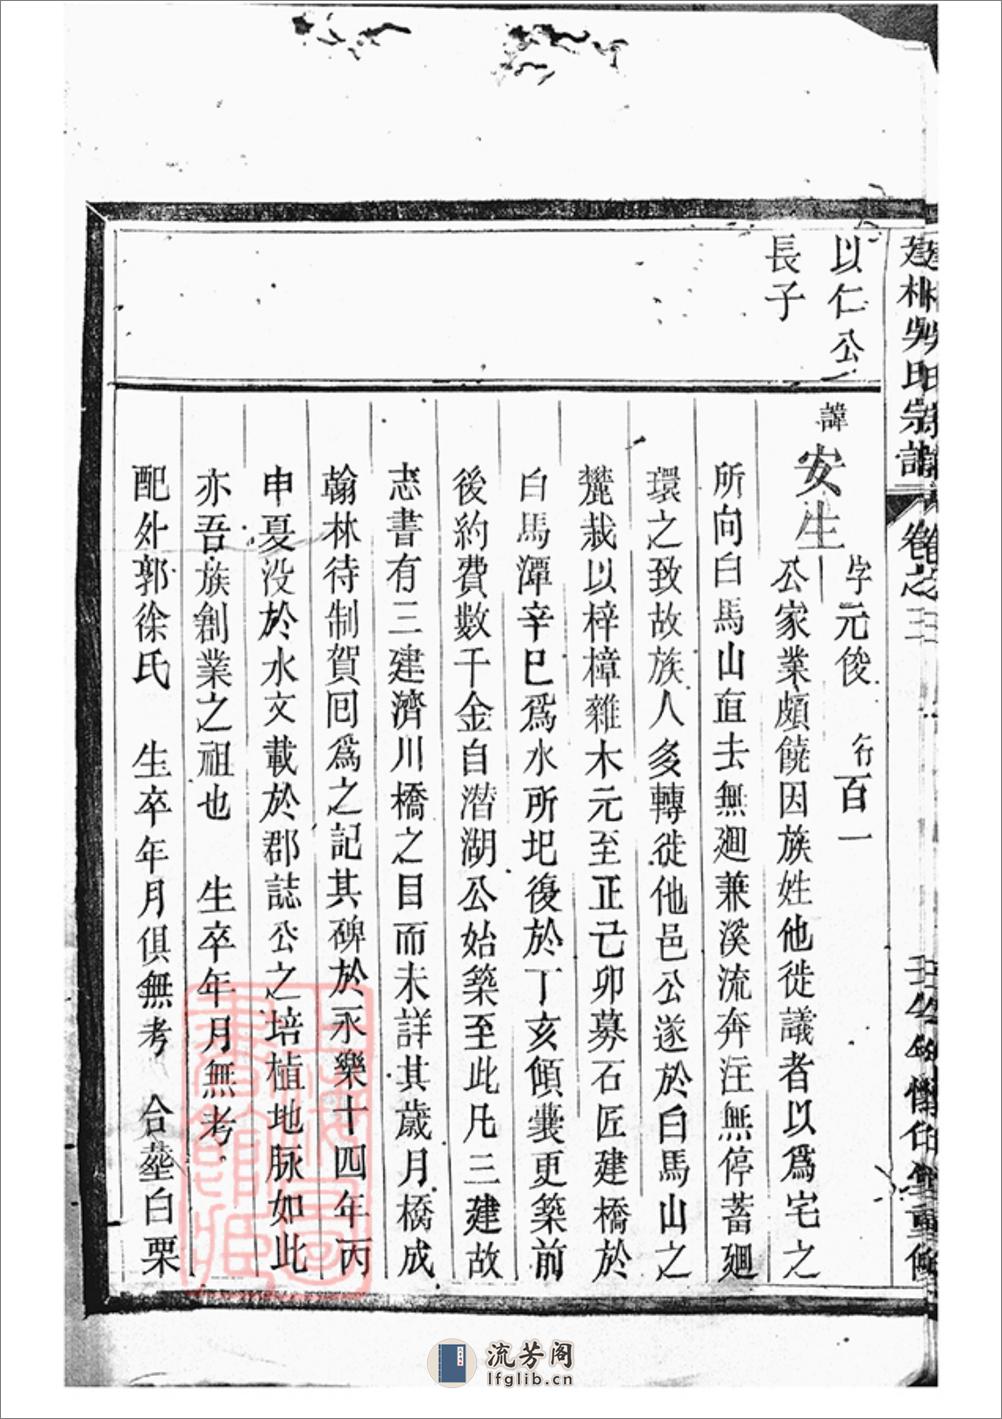 吳氏宗譜
卷之三
以仁公
長子
諱安生 字元俊 行百一
公家業頗饒因族姓他徙議者以為宅之
所向白馬山直去無廻兼溪流奔注無停蓄廻
環之致故族人多轉徙他邑公遂於白馬山之
麓栽以梓樟雜木元至正己卯募石匠建橋於
白馬潭辛巳為水所圯復於丁亥傾囊更築前
後約費數千金自潛湖公始築至此凡三建故
志書有三建濟川橋之目而未詳其歲月橋成
翰林待制賀囘為之記其碑於永樂十四年丙
申夏没於水文載於郡誌公之培植地脉如此
亦吾族創業之祖也 生卒年月無考
配外郭徐氏 生卒年月俱無考 合塟白栗
上海圖書館藏
流芳阁
lfglib.cn